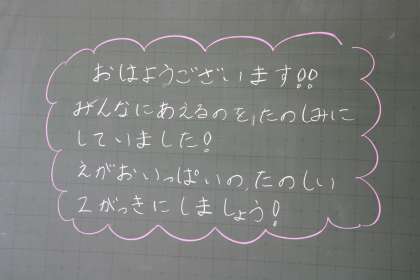 おはようございます!!
みんなにあえるのを、たのしみに
していました!
えがおいっぱいの、たのしい
2がっきにしましょう!